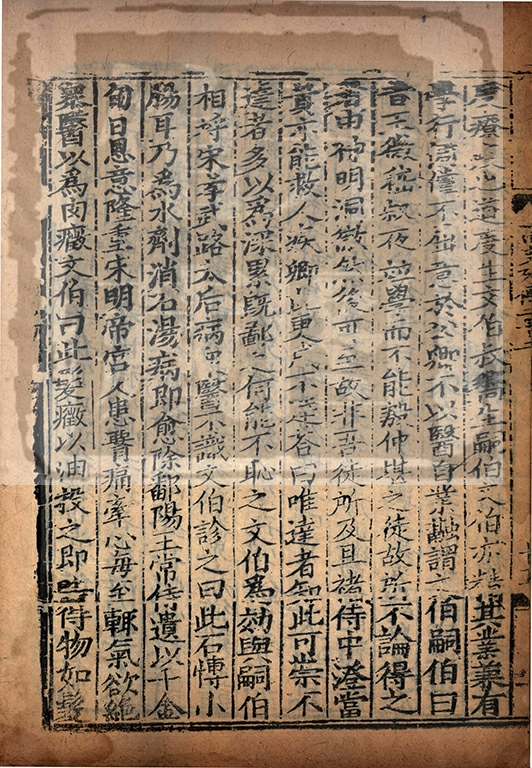 度療疾也道度生文伯叔嚮生嗣伯文伯亦精其業兼有
學行倜儻不屈意於公卿不以醫自業融謂文伯嗣伯曰
昔王微嵇叔夜並學而不能殷仲堪之徒故所不論得之
者由神明洞徹然後可至故非吾徒所及且褚侍中澄富
貴亦能救人疾卿此更成不達答曰唯達者知此可崇不
達者多以為深累既鄙之何能不恥之文伯為効與嗣伯
相埒宋孝武路太后病眾醫不識文伯診之曰此石愽小
腸耳乃為水劑消石湯病即愈除鄱陽王常侍遺以千金
旬日恩意隆重宋明帝宮人患腎痛牽心每至輒氣欲絕
衆醫以為肉癥文伯曰此髮癥以油投之即吐得物如髮